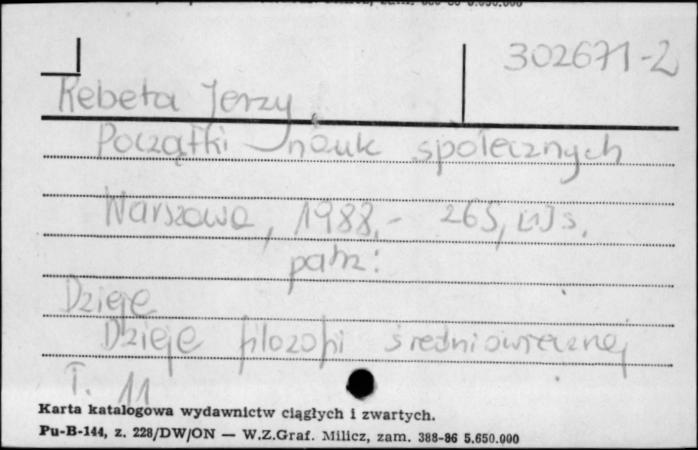 302671-2
Rebeta Jerzy
Początki nauk społecznych
Warszawa, 1988.- 265, [1] s.
patrz:
Dzieje
Dzieje filozofii średniowiecznej
T. 11
Karta katalogowa wydawnictw ciągłych i zwartych.
Pu-B-144, z. 228/DW/ON — W.Z.Graf. Milicz, zam. 388-86 5.650.000